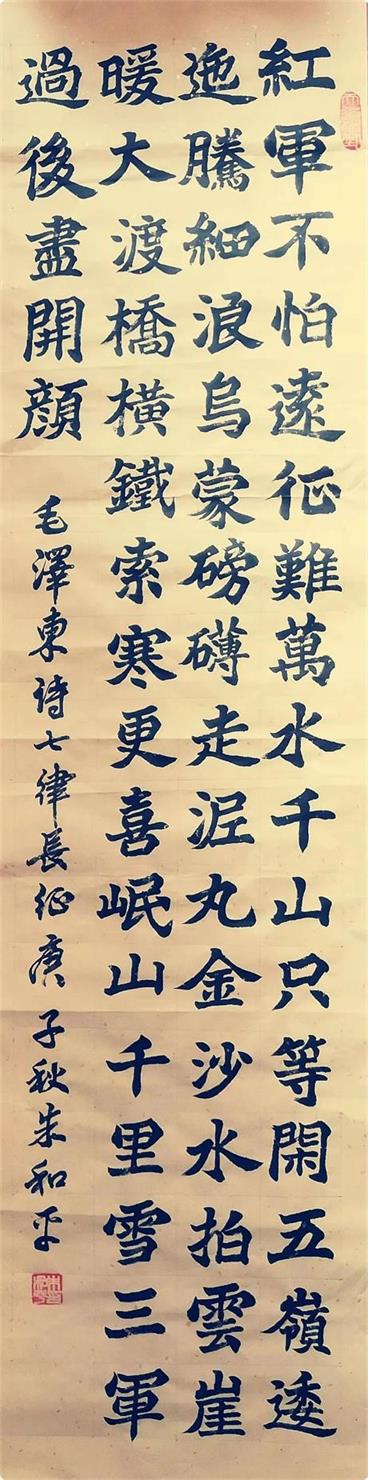 紅軍不怕遠征難萬水千山只等閑五嶺逶
迤騰細浪烏蒙磅礴走泥丸金沙水拍雲崖
暖大渡橋橫鐵索寒更喜岷山千里雪三軍
過後盡開顏
毛澤東诗七律長征庚子秋朱和平